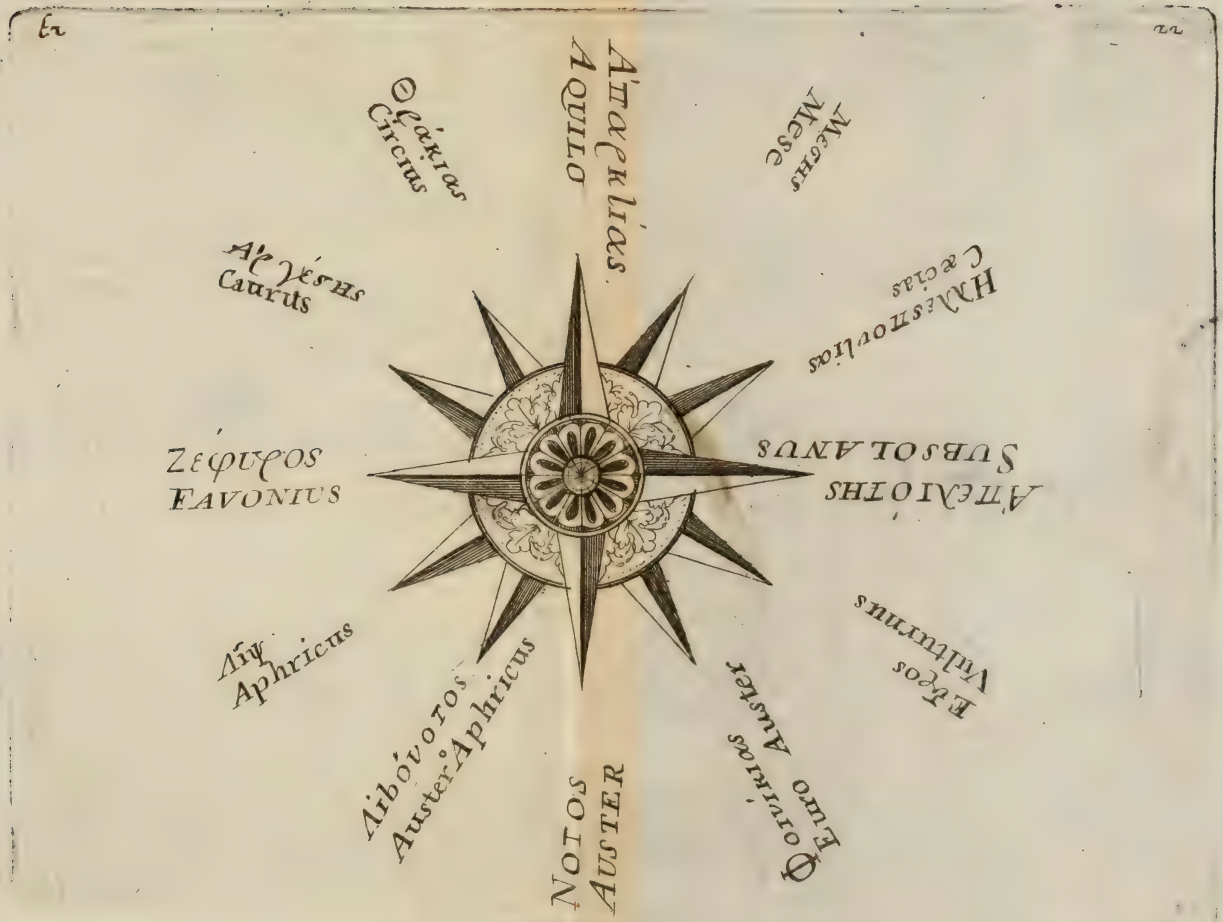 22
Ἀπαρκτίας
AQUILO
Μεσης
Mese
Ηλλεσποντίας
Cæcias
SUBSOLANUS
Ἀπελιότης
Εὖρος
Vulturnus
Φοινίκιας
Euro Auster
NOTOS
AUSTER
Λιβόνοτος
Auster Aphricus
Λὶψ
Aphricus
Ζεφυρος
FAVONIUS
Ἀργέσης
Caurus
Θράκιας
Circius